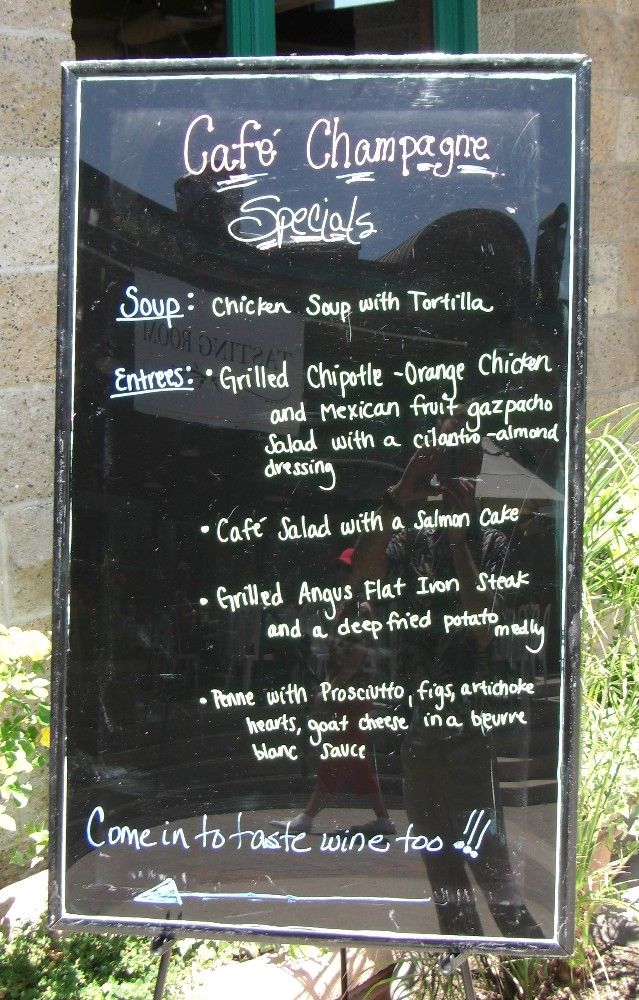 Café Champagne
Specials
Soup: Chicken Soup with Tortilla
Entrees: • Grilled Chipotle -Orange Chicken
and Mexican fruit gazpacho
Salad with a cilantro -almond
dressing
• Café Salad with a Salmon Cake
• Grilled Angus Flat Iron Steak
and a deep fried potato medly
• Penne with Prosciutto, figs, artichoke
hearts, goat cheese in a beurre
blanc sauce
Come in to taste wine too !!!
TASTING ROOM